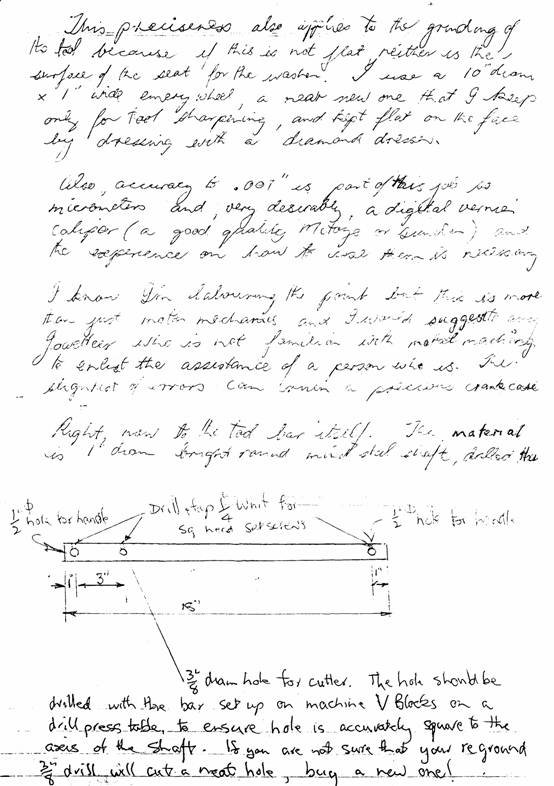 This preciseness also applies to the grinding of
the tool because if this is not flat, neither is the
surface of the seat for the washer. I use a 10" diam
x 1" wide emery wheel, a near new one that I keep
only for tool sharpening, and kept flat on the face
by dressing with a diamond dresser.
Also, accuracy to .001" is part of this job so
micrometers and, very desirably, a digital vernier
caliper (a good quality or ) and
the experience on how to use them is necessary
I know I'm labouring the point but this is more
than just motor mechanics and I would suggest any
Jowetteer who is not familiar with metal machining
to enlist the assistance of a person who is. The
slightest of errors can ruin a precious crankcase
Right, now to the tool bar itself. The material
is 1" diam bright round mild steel shaft, drilled thu
1/2" Φ hole for handle
Drill & tap 1/4 Whit for
sq head setscrews
1/2" Φ hole for handle
1" 3" 1"
18"
3/8" diam hole for cutter. The hole should be
drilled with the bar set up on machine V Blocks on a
drill press table, to ensure hole is accurately square to the
axis of the shaft. If you are not sure that your reground
3/8" drill will cut a neat hole, buy a new one!